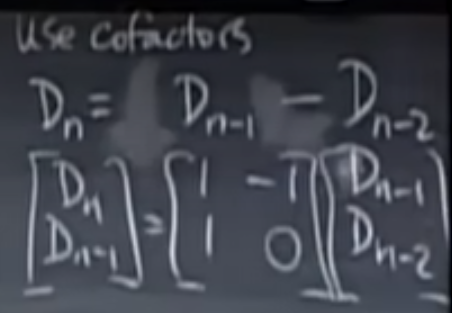 use cofactors
Dn = Dn-1 - Dn-2
[Dn Dn-1] = [1 -1 1 0] [Dn-1 Dn-2]